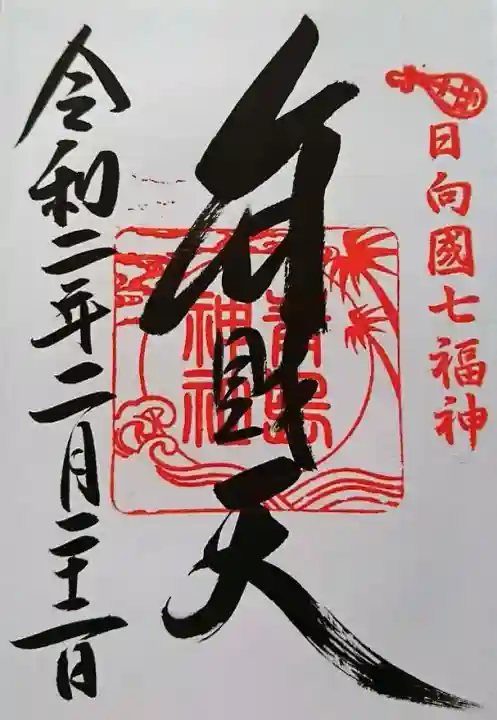 日向國七福神
弁財天
青島
神社
令和二年二月二十二日